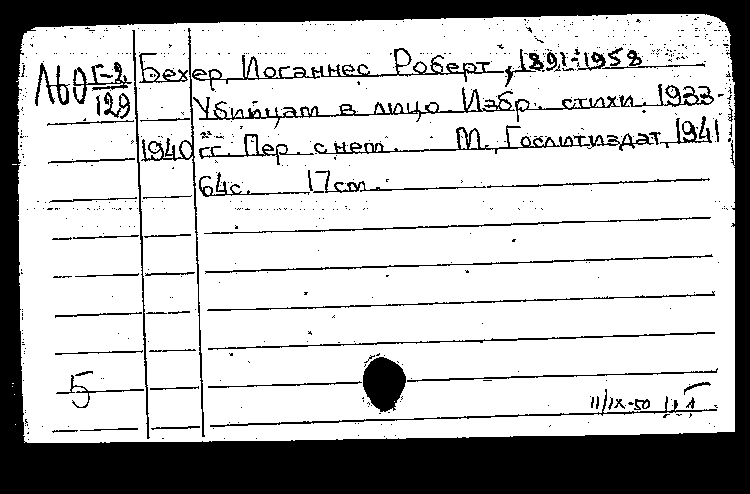 Л60 Г-2/129 Бехер, Иоганнес Роберт, 1891-1958
Убийцам в лицо Избр. стихи. 1933-
1940 гг. Пер. с нем. М., Гослитиздат, 1941
64с. 17см.
5
11/IX-50